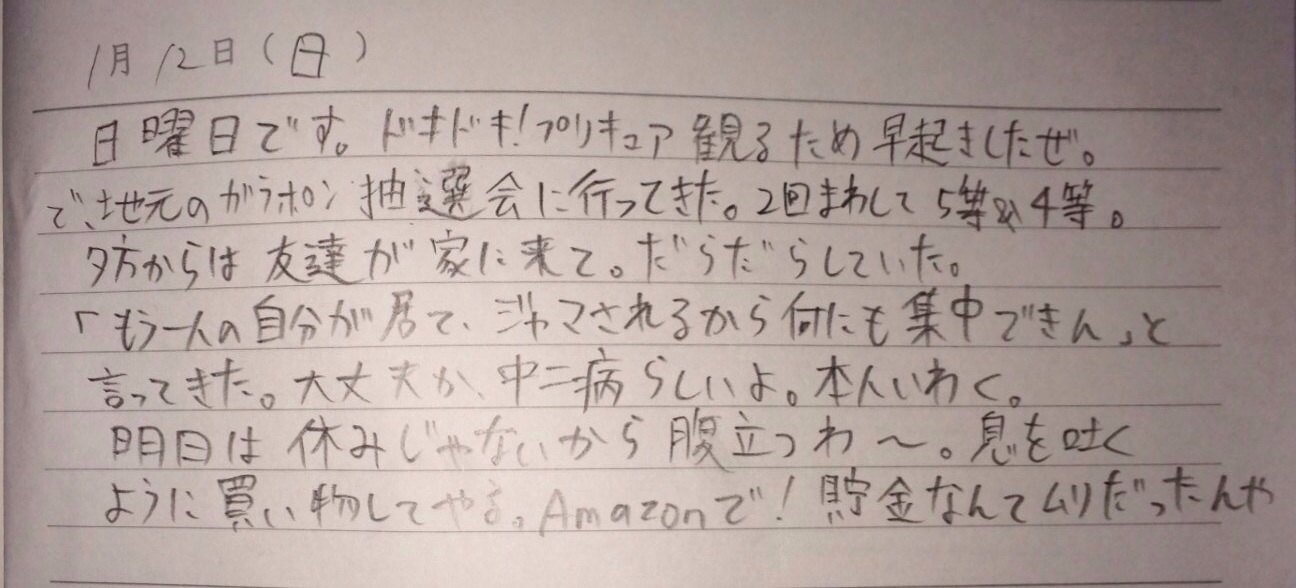 1月12日(日)
日曜日です。ドキドキ!プリキュア観るため早起きしたぜ。
で、地元のガラポン抽選会に行ってきた。2回まわして5等&4等。
夕方からは友達が家に来て。だらだらしていた。
「もう一人の自分が居て、ジャマされるから何にも集中できん」と
言ってきた。大丈夫か、中二病らしいよ。本人いわく。
明日は休みじゃないから腹立つわ〜。息を吐く
ように買い物してやる。Amazonで!貯金なんてムリだったんや